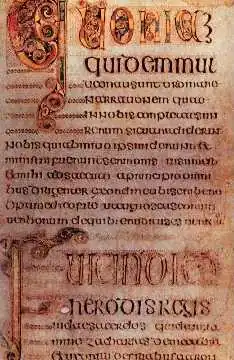 QUONIAM
quidem mul
ti conati sunt ordinare
narrationem quae
in nobis completae sunt
rerum sicut tradiderunt
nobis qui ab initio ipsi viderunt et
ministri fuerunt sermonis
mihi adsecuto a principio omni
bus diligenter ex ordine tibi scribere
optime theophile ut cognoscas eorum
verborum de quibus eruditus es
FUIT IN DIE
herodis regis
iudae sacerdos quidam
nomine zacharias de vice abia